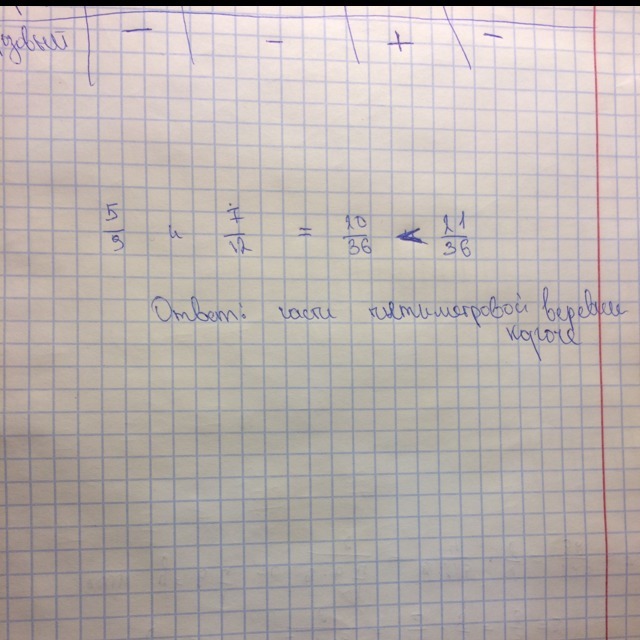 — - + -
5/9 и 7/12 = 20/36 < 21/36
Ответ: части пятиметровой веревки
короче